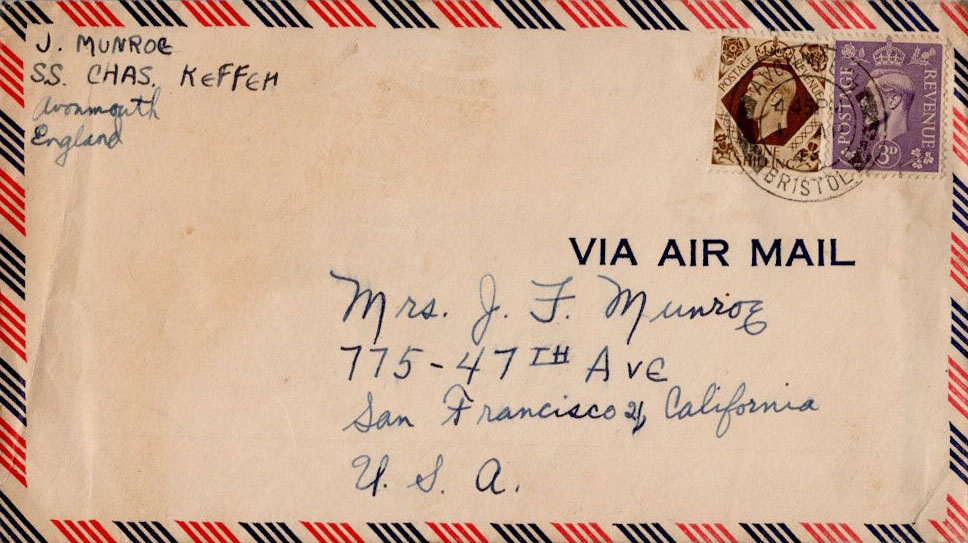 J. MUNROE
S.S. CHAS. KEFFEH
Avonmouth
England
POSTAGE REVENUE
ONE SHILLING
POSTAGE REVENUE
3D
AVONMOUTH
BRISTOL
VIA AIR MAIL
Mrs. J. F. Munroe
775-47TH Ave
San Francisco 21, California
U. S. A.